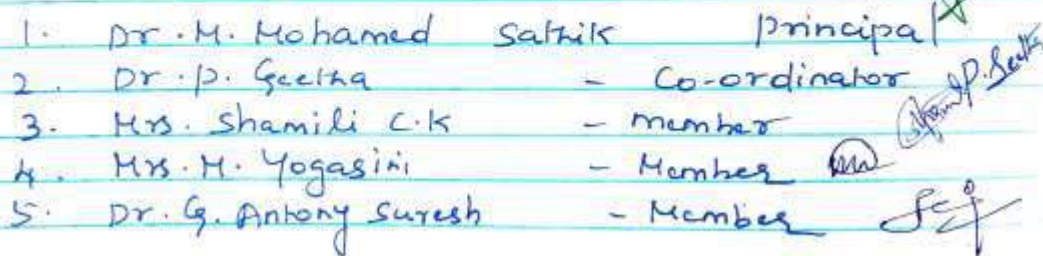 1. Dr. M. Mohamed Sathik Principal
2. Dr. P. Geetha - Co-ordinator P. Geetha
3. Mrs. Shamili C.K - member
4. Mrs. M. Yogasini - Member
5. Dr. G. Antony Suresh - Member